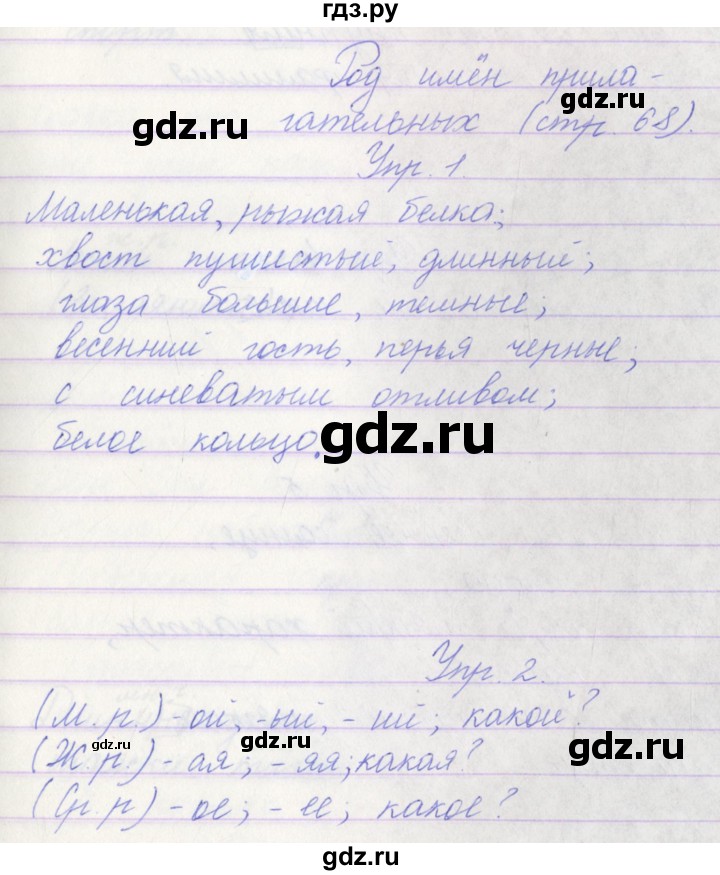 гдз.ру
Род имён прила-
gdz.ru
gdz.ru
гательных (стр. 68).
Упр. 1.
Маленькая, рыжая белка;
хвост пушистый, длинный;
глаза большие, темные;
весенний гость, перья черные;
с синеватым отливом;
белое кольцо.
gdz.ru
Упр. 2.
(М.р.) -ой, -ый, -ий; какой?
gdz.ru
gdz.ru
gdz.ru
(Ж.р) -ая; -яя; какая?
(Ср.р) -ое; -ее; какое?
gdz.ru